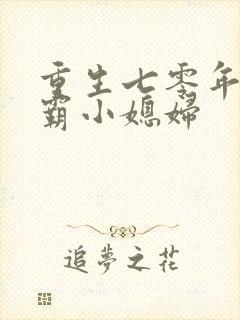 重生七零年
霸小媳婦
追夢之花